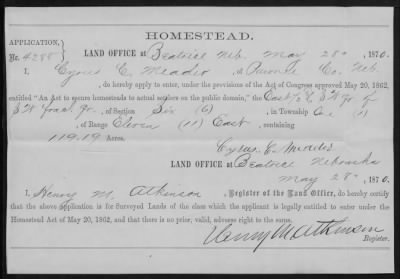 HOMESTEAD.
APPLICATION,
No. 4288
LAND OFFICE at Beatrice Neb. May 28th, 1870.
I, Cyrus E. Meader, of Pawnee Co. Neb.
, do hereby apply to enter, under the provisions of the Act of Congress approved May 20, 1862,
entitled "An Act to secure homesteads to actual settlers on the public domain," the East ½ of S W qr of
S W qr of Section Six (6), in Township One (1)
, of Range Eleven (11) East, containing
119.19 Acres.
Cyrus E. Meader
LAND OFFICE at Beatrice Nebraska
May 28th 1870.
I, Henry M. Atkinson, Register of the Land Office, do hereby certify
that the above application is for Surveyed Lands of the class which the applicant is legally entitled to enter under the
Homestead Act of May 20, 1862, and that there is no prior, valid, adverse right to the same.
Henry M Atkinson
Register.